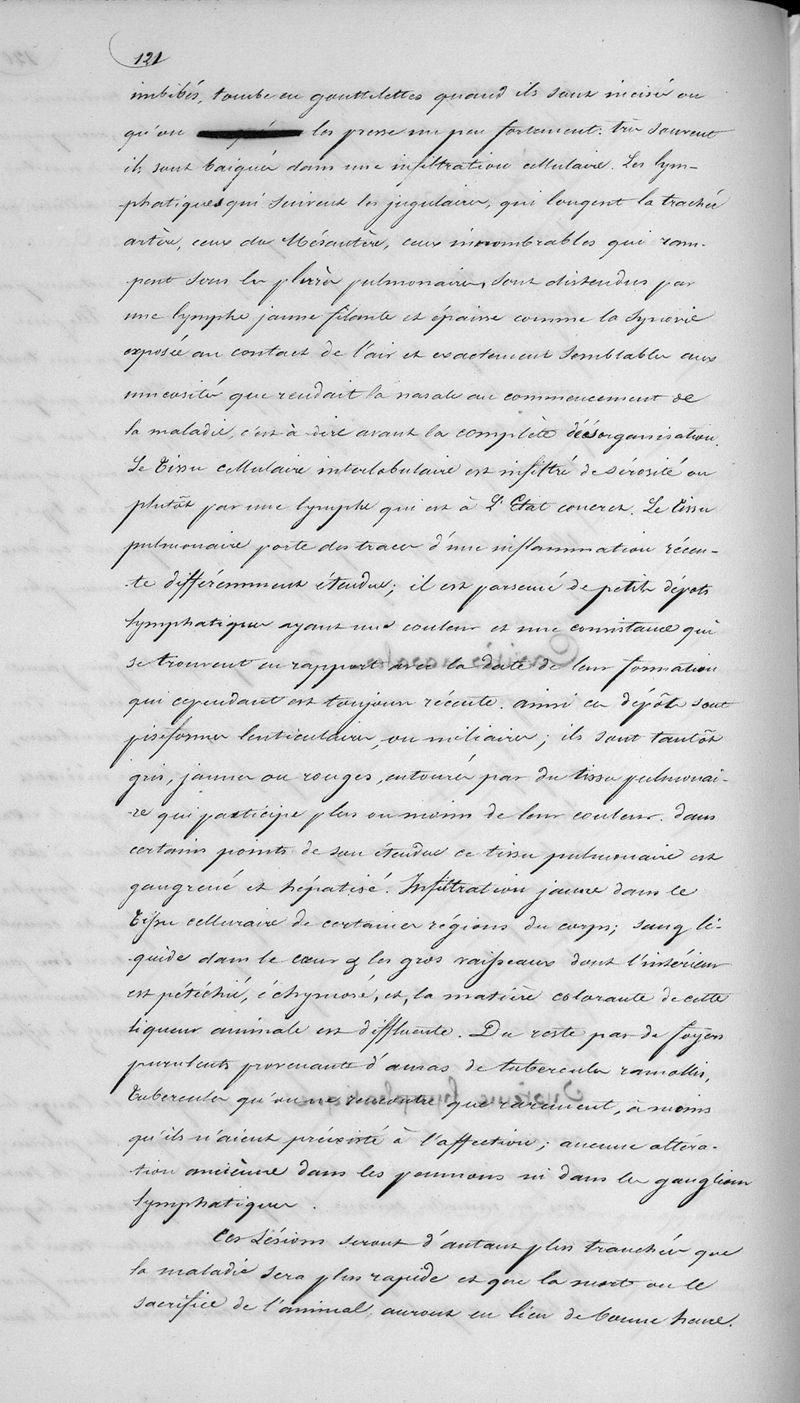 121
imbibés, tombe en gouttelettes quand ils sont incisés ou
qu'on les presse un peu fortement. très souvent
ils sont baignés dans une infiltration cellulaire. Les lym-
phatiques qui suivent les jugulaires, qui longent la trachée
artère, ceux du Mésentère, ceux innombrables qui ram-
pent sous les plèvres pulmonaires, sont distendus par
une lymphe jaune filante et épaisse comme la synovie
exposée au contact de l'air et exactement semblables aux
mucosités que rendait la nasale au commencement de
la maladie, c'est à dire avant la complète désorganisation.
Le Tissu cellulaire interlobulaire est infiltré de sérosité ou
plutôt par une lymphe qui est à l'Etat concret. Le tissu
pulmonaire porte des traces d'une inflammation récen-
te différemment étendue; il est parsemé de petits dépots
lymphatiques ayant une couleur et une consistance qui
se trouvent en rapport avec la date de leur formation
qui cependant est toujours récente. ainsi ces dépôts sont
pisiformes lenticulaires, ou miliaires; ils sont tantôt
gris, jaunes ou rouges, entourés par du tissu pulmonai-
re qui participe plus ou moins de leur couleur. dans
certains points de son étendue ce tissu pulmonaire est
gangrené et hépatisé. Infiltration jaune dans le
Tissu celluraire de certaines régions du corps; sang li-
quide dans le cœur & les gros vaisseaux dont l'intérieur
est pétéchié, échymosé, et, la matière colorante de cette
liqueur animale est diffluente. Du reste pas de foyers
purulents provenants d'amas de tubercules ramollis,
Tubercules qu'on ne rencontre que rarement, à moins
qu'ils n'aient préexisté à l'affection; aucune altéra-
tion ancienne dans les poumons ni dans les ganglions
lymphatiques.
Ces Lésions seront d'autant plus tranchées que
la maladie sera plus rapide et que la mort ou le
sacrifice de l'animal, auront eu lieu de bonne heure.